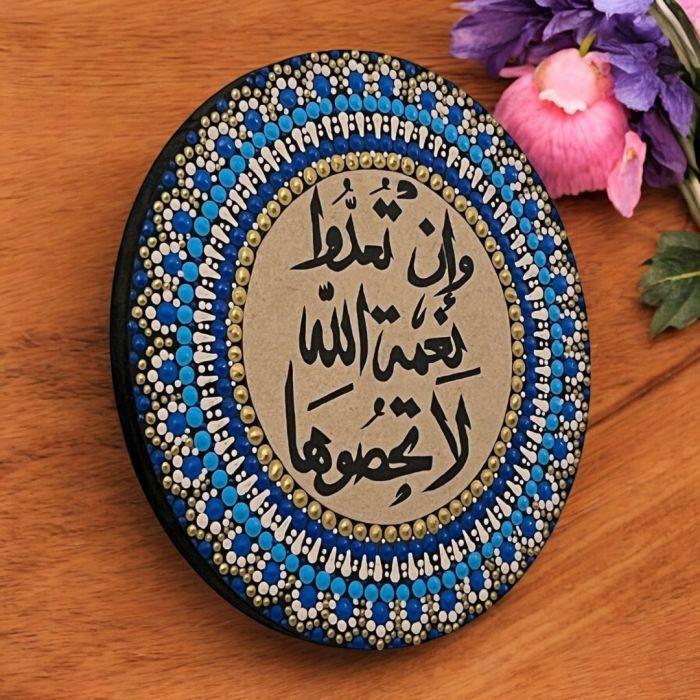 وَإِن تَعُدُّوا
نِعْمَة الله
لَا تُحصُوهَا